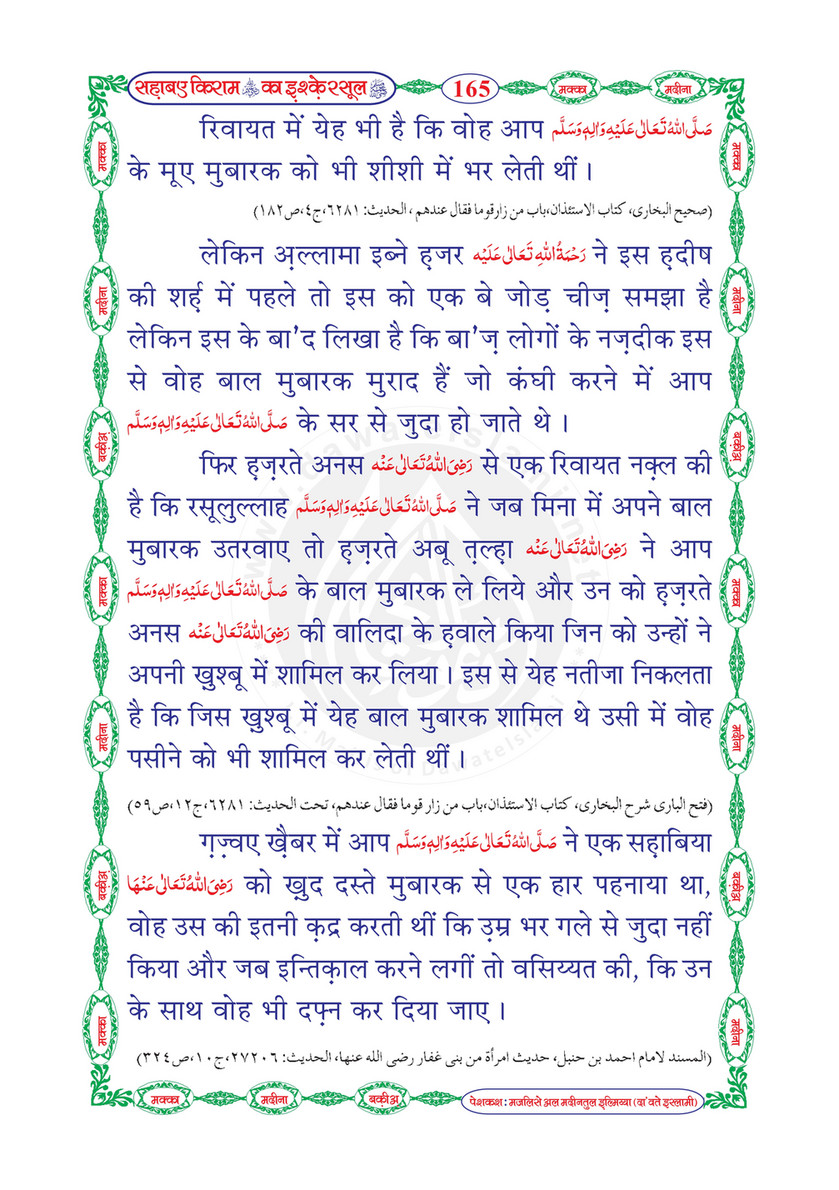 सह़ाबए किराम का इ़श्क़े रसूल
165
मक्का
मदीना
रिवायत में येह भी है कि वोह आप صَلَّى اللهُ تَعَالٰى عَلَيْهِ وَاٰلِهٖ وَسَلَّم
के मूए मुबारक को भी शीशी में भर लेती थीं ।
(صحیح البخاری، کتاب الاستئذان،باب من زارقوما فقال عندهم ، الحدیث: ٦٢٨١،ج٤،ص١٨٢)
लेकिन अ़ल्लामा इब्ने ह़जर رَحْمَةُ اللهِ تَعَالٰى عَلَيْه ने इस ह़दीष
की शर्ह़ में पहले तो इस को एक बे जोड़ चीज़ समझा है
लेकिन इस के बा'द लिखा है कि बा'ज़ लोगों के नज़दीक इस
से वोह बाल मुबारक मुराद हैं जो कंघी करने में आप
صَلَّى اللهُ تَعَالٰى عَلَيْهِ وَاٰلِهٖ وَسَلَّم के सर से जुदा हो जाते थे ।
फिर ह़ज़रते अनस رَضِىَ اللهُ تَعَالٰى عَنْه से एक रिवायत नक़्ल की
है कि रसूलुल्लाह صَلَّى اللهُ تَعَالٰى عَلَيْهِ وَاٰلِهٖ وَسَلَّم ने जब मिना में अपने बाल
मुबारक उतरवाए तो ह़ज़रते अबू त़ल्ह़ा رَضِىَ اللهُ تَعَالٰى عَنْه ने आप
صَلَّى اللهُ تَعَالٰى عَلَيْهِ وَاٰلِهٖ وَسَلَّم के बाल मुबारक ले लिये और उन को ह़ज़रते
अनस رَضِىَ اللهُ تَعَالٰى عَنْه की वालिदा के ह़वाले किया जिन को उन्हों ने
अपनी ख़ुश्बू में शामिल कर लिया । इस से येह नतीजा निकलता
है कि जिस ख़ुश्बू में येह बाल मुबारक शामिल थे उसी में वोह
पसीने को भी शामिल कर लेती थीं ।
(فتح الباری شرح البخاری، کتاب الاستئذان،باب من زار قوما فقال عندهم، تحت الحدیث: ٦٢٨١،ج١٢،ص٥٩)
ग़ज़्वए ख़ैबर में आप صَلَّى اللهُ تَعَالٰى عَلَيْهِ وَاٰلِهٖ وَسَلَّم ने एक सह़ाबिया
رَضِىَ اللهُ تَعَالٰى عَنْهَا को ख़ुद दस्ते मुबारक से एक हार पहनाया था,
वोह उस की इतनी क़द्र करती थीं कि उ़म्र भर गले से जुदा नहीं
किया और जब इन्तिक़ाल करने लगीं तो वसिय्यत की, कि उन
के साथ वोह भी दफ़्न कर दिया जाए ।
(المسند لامام احمد بن حنبل، حدیث امرأة من بنی غفار رضی الله عنها، الحدیث: ٢٧٢٠٦،ج١٠،ص٣٢٤)
मक्का
मदीना
बक़ीअ़
मक्का
मदीना
बक़ीअ़
मक्का
मक्का
मदीना
बक़ीअ़
मक्का
मदीना
बक़ीअ़
मदीना
मक्का
मदीना
बक़ीअ़
पेशकश : मजलिसे अल मदीनतुल इ़ल्मिय्या (दा'वते इस्लामी)